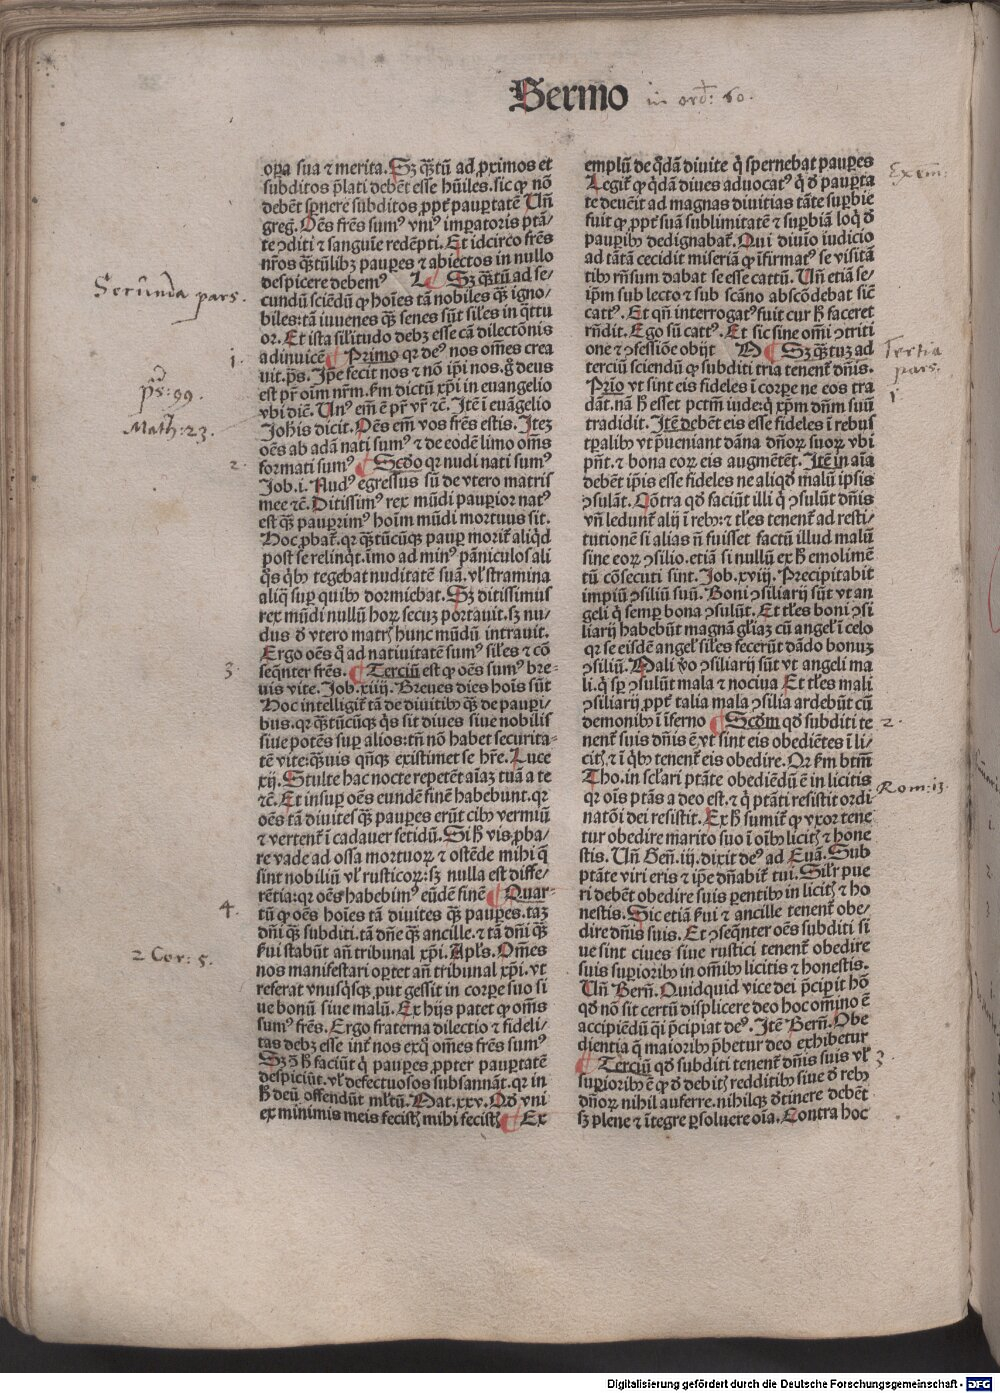 Sermo in ord: 60.
oꝑa sua ⁊ merita. Sꝫ qȝtū ad ꝓximos et
subditos p̄lati debēt esse hūiles. sic ꝙ nō
debēt spnere subditos ꝓpt̕ paupertatē Uñ
greg. Oēs frēs sumꝰ vniꝰ imꝑatoris ptā/
te ꝯditi ⁊ sanguīe redēpti. Et idcirco frēs
nr̄os qȝtūlibꝫ pauꝑes ⁊ abiectos in nullo
despicere debemꝰ L Sꝫ qȝtū ad se/
Secūnda pars.
cundū sciēdū ꝙ hoīes tā nobiles qȝ igno/
biles: tā iuuenes qȝ senes sūt siles in qȝttu
or. Et ista silitudo debꝫ esse cā dilectōnis
1.
adinuicē Primo qꝛ deꝰ nos omēs crea
uit. ps̄. Ip̄e fecit nos ⁊ nō ip̄i nos. q̄ deus
ps: 99.
est pr̄ oīm nr̄m. km̄ dictū xp̄i in euangelio
Math: 23.
vbi diē. Unꝰ em̄ ē pr̄ vr̄ ⁊c. Itē ī euāgelio
Joh̄is dicit. Oēs em̄ vos frēs estis. Iteꝫ
oēs ab adā nati sumꝰ ⁊ de eodē limo om̄s
2.
formati sumꝰ Scd̄o qꝛ nudi nati sumꝰ
Job. i. Nudꝰ egressus sū de vtero matris
mee ⁊c. Ditissimꝰ rex mūdi paupior natꝰ
est qȝ pauꝑrimꝰ hoīm mūdi mortuus sit.
Hoc ꝓbat̕. qꝛ qȝtūcūqꝫ pauꝑ morit̕ aliqd
post se relinqt. īmo ad minꝰ pāniculos ali
q̄s qbꝰ tegebat nuditatē suā. vl̕ stramina
aliq̄ suꝑ quibꝰ dormiebat. Sꝫ ditissimus
rex mūdi nullū hoꝝ secuꝫ portauit. sꝫ nu/
dus d̄ vtero matrꝭ hunc mūdū intrauit.
Ergo oēs q̄ ad natiuitatē sumꝰ siles ⁊ cō
3.
seqn̄ter frēs. Terciū est ꝙ oēs sumꝰ bre/
uis vite. Job. xiiij. Breues dies hoīs sūt
Hoc intelligit̕ tā de diuitibꝰ qȝ de pauꝑi/
bus. qꝛ qȝtūcūqꝫ q̄s sit diues siue nobilis
siue potēs suꝑ alios: tn̄ nō habet securita-
tē vite: qȝuis qn̄qꝫ existimet se hr̄e. Luce
xij. Stulte hac nocte repetēt aīaꝫ tuā a te
⁊c. Et insuꝑ oēs eundē finē habebunt. qꝛ
oēs tā diuites qȝ pauꝑes erūt cibꝰ vermiū
⁊ vertent̕ ī cadauer fetidū. Si h̄ vis ꝓba/
re vade ad ossa mortuoꝝ ⁊ ostēde mihi q̄
sint nobiliū vl̕ rusticoꝝ: sꝫ nulla est diffe/
rētia: qꝛ oēs habebimꝰ eūdē finē Quar-
4.
tū ꝙ oēs hoīes tā diuites qȝ pauꝑes. taꝫ
dn̄i qȝ subditi. tā dn̄e qȝ ancille. ⁊ tā dn̄i qȝ
ẜui stabūt an̄ tribunal xp̄i. Apl̄s. Omēs
2 Cor: 5.
nos manifestari oꝑtet an̄ tribunal xp̄i. vt
referat vnusq̄sqꝫ ꝓut gessit in corꝑe suo si
ue bonū siue malū. Ex hijs patet ꝙ om̄s
sumꝰ frēs. Ergo fraterna dilectio ⁊ fideli/
tas debꝫ esse int̕ nos exq̄ omēs frēs sumꝰ
Sꝫ d̄ h̄ faciūt q̄ pauꝑes ꝓpter pauꝑtatē
despiciūt. vl̕ defectuosos subsannāt. qꝛ in
h̄ deū offendūt ml̕tū. Mat. xxv. Qd̄ vni
ex minimis meis fecistꝭ mihi fecistꝭ Ex
emplū de q̄dā diuite q̄ spernebat pauꝑes
Exem:
Legit̕ ꝙ q̄dā diues aduocatꝰ q̄ d̄ pauꝑta
te deuēit ad magnas diuitias tāte suꝑbie
fuit ꝙ ꝓpt̕ suā sublimitatē ⁊ suꝑbiā loq̄ d̄
pauꝑibꝰ dedignabat̕. Qui diuīo iudicio
ad tātā cecidit miseriā ꝙ īfirmatꝰ se visitā
tibꝰ rn̄sum dabat se esse cattū. Uñ etiā se/
ip̄m sub lecto ⁊ sub scāno abscōdebat sic̄
cattꝰ. Et qn̄ interrogatꝰ fuit cur h̄ faceret
rn̄dit. Ego sū cattꝰ. Et sic sine om̄i ꝯtriti
one ⁊ ꝯfessiōe obijt M Sꝫ qȝtuꝫ ad
Tertia pars.
terciū sciendū ꝙ subditi tria tenent̕ dn̄is.
1
Prīo vt sint eis fideles ī corꝑe ne eos tra
dāt. nā h̄ esset pctm̄ iude: q̄ xp̄m dn̄m suū
tradidit. Itē debēt eis esse fideles ī rebus
tꝑalibꝰ vt p̄ueniant dāna dn̄oꝝ suoꝝ vbi
pn̄t. ⁊ bona eoꝝ eis augmētēt. Itē in aīa
debēt ip̄is esse fideles ne aliqd̄ malū ipsis
ꝯsulāt. Cōtra qd̄ faciūt illi q̄ ꝯsulūt dn̄is
vn̄ ledunt̕ alij ī rebꝰ: ⁊ tl̄es tenent̕ ad resti/
tutionē si alias n̄ fuisset factū illud malū
sine eoꝝ ꝯsilio. etiā si nullū ex h̄ emolimē
tū cōsecuti sint. Job. xviij. Precipitabit
impiū ꝯsiliū suū. Boni ꝯsiliarij sūt vt an/
geli q̄ semꝑ bona ꝯsulūt. Et tl̄es boni ꝯsi
liarij habebūt magnā gl̄iaꝫ cū angel̕ ī celo
qꝛ se eisdē angel̕ siles fecerūt dādo bonuꝫ
ꝯsiliū. Mali v̄o ꝯsiliarij sūt vt angeli ma
li. q̄ sꝑ ꝯsulūt mala ⁊ nociua Et tl̄es mali
ꝯsiliarij ꝓpt̕ talia mala ꝯsilia ardebūt cū
demonibꝰ ī īferno Scd̄m qd̄ subditi te
2.
nent̕ suis dn̄is ē vt sint eis obediētes ī li/
citꝭ ⁊ ī qbꝰ tenent̕ eis obedire. Qꝛ km̄ btm̄
Tho. in scl̕ari ptāte obediēdū ē in licitis
Rom: 13.
qꝛ oīs ptās a deo est. ⁊ q̄ ptāti resistit ordi
natōi dei resistit. Ex h̄ sumit̕ ꝙ vxor tene
tur obedire marito suo ī oībꝰ licitꝭ ⁊ hone
stis. Uñ Gen̄. iij. dixit deꝰ ad Euā. Sub
ptāte viri eris ⁊ ip̄e dn̄abit̕ tui. Silr̄ pue
ri debēt obedire suis parentibꝰ in licitꝭ ⁊ ho
nestis. Sic etiā ẜui ⁊ ancille tenent̕ obe/
dire dn̄is suis. Et ꝯseqn̄ter oēs subditi si
ue sint ciues siue rustici tenent̕ obedire
suis suꝑioribꝰ in om̄ibꝰ licitis ⁊ honestis.
Uñ Bern̄. Quidquid vice dei p̄cipit hō
qd̄ nō sit certū displicere deo hoc omīno ē
accipiēdū q̄i p̄cipiat deꝰ. Itē Bern̄. Obe
dientia q̄ maioribꝰ p̄betur deo exhibetur
Terciū qd̄ subditi tenent̕ dn̄is suis vl̕
3
suꝑioribꝰ ē ꝙ d̄ debitꝭ redditibꝰ siue d̄ rebꝰ
dn̄oꝝ nihil auferre. nihilqꝫ d̄tinere debēt
sꝫ plene ⁊ ītegre ꝑsoluere oīa. Contra hoc
Digitalisierung gefördert durch die Deutsche Forschungsgemeinschaft - DFG